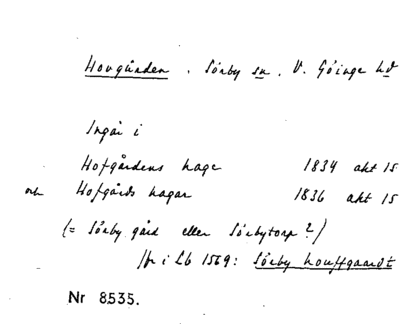 Hovgården. Sörby sn. V. Göinge hd
Ingår i
Hofgårdens hage 1834 akt 15
och Hofgårds hagar 1836 akt 15
(= Sörby gård eller Sörbytorp?)
Jfr i Lb 1569: Sörby houffgaardt
Nr 8535.